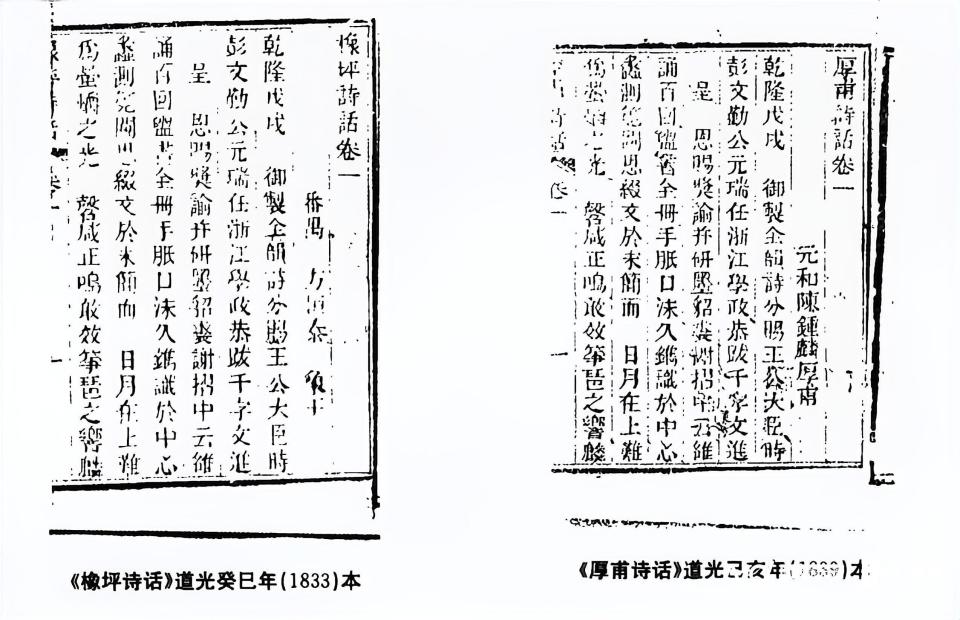 橡坪詩話卷一
番禺 方恒泰
乾隆戊戌 御製全韻詩分賜王公大臣時
彭文勤公元瑞任浙江學政恭跋千字文進
呈 恩賜獎諭并硏墨貂裘謝摺中云雒
誦百回盥書全冊手胝口沫久鐫識於中心
蠡測管闚思綴文於末簡而 日月在上難
爲螢爝之光 磬咸正鳴敢效箏琶之響
橡坪詩話 卷一
一
《橡坪诗话》道光癸巳年(1833)本
厚甫詩話卷一
元和陳鍾麟厚甫
乾隆戊戌 御製全韻詩分賜王公大臣時
彭文勤公元瑞任浙江學政恭跋千字文進
呈 恩賜獎諭并硏墨貂裘謝摺中云雒
誦百回盥書全冊手胝口沫久鐫識於中心
蠡測管闚思綴文於末簡而 日月在上難
爲螢爝之光 磬咸正鳴敢效箏琶之響
詩話 卷一
一
《厚甫诗话》道光己亥年(1839)本